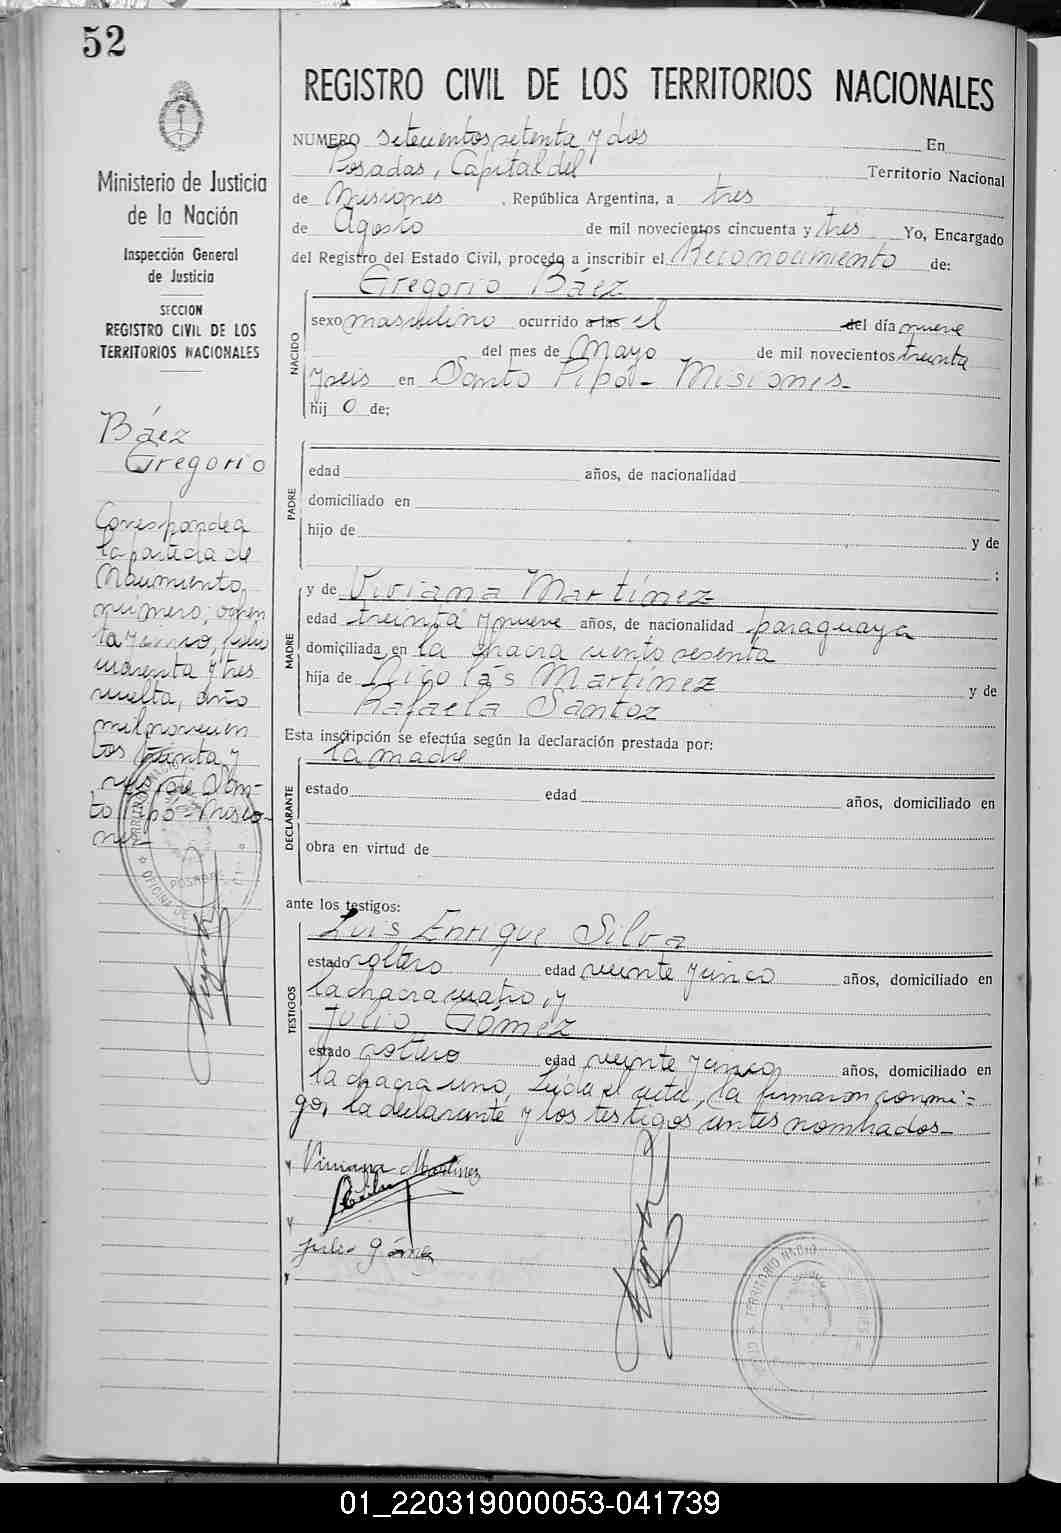 52
REGISTRO CIVIL DE LOS TERRITORIOS NACIONALES
Ministerio de Justicia
de la Nación
Inspección General
de Justicia
SECCION
REGISTRO CIVIL DE LOS
TERRITORIOS NACIONALES
Báez
Gregorio
Corresponde a
la partida de
Nacimiento
número, ochen
ta y cinco, folio
cuarenta y tres
vuelta, año
mil novecien
tos treinta y
seis de San-
to Pipó - Misio-
nes
NUMERO setecientos setenta y dos En
Posadas, Capital del Territorio Nacional
de Misiones, República Argentina, a tres
de Agosto de mil novecientos cincuenta y tres Yo, Encargado
del Registro del Estado Civil, procedo a inscribir el Reconocimiento de:
Gregorio Báez
NACIDO
sexo masculino ocurrido a las el del día nueve
del mes de Mayo de mil novecientos treinta
y seis en Santo Pipó - Misiones -
hij o de:
PADRE
edad años, de nacionalidad
domiciliado en
hijo de y de
;
MADRE
y de Viviana Martínez
edad treinta y nueve años, de nacionalidad paraguaya
domiciliada en la chacra ciento sesenta
hija de Nicolás Martínez y de
Rafaela Santoz
Esta inscripción se efectúa según la declaración prestada por:
la madre
DECLARANTE
estado edad años, domiciliado en
obra en virtud de
ante los testigos:
TESTIGOS
Luis Enrique Silva
estado soltero edad veinte y cinco años, domiciliado en
la chacra cuatro, y
Julio Gómez
estado soltero edad veinte y cinco años, domiciliado en
la chacra uno, Leída el acta, la firmaron conmi=
go, la declarante y los testigos antes nombrados -
Viviana Martínez
y
Julio Gómez
POSADAS
TERRITORIO NACIO
01_220319000053-041739